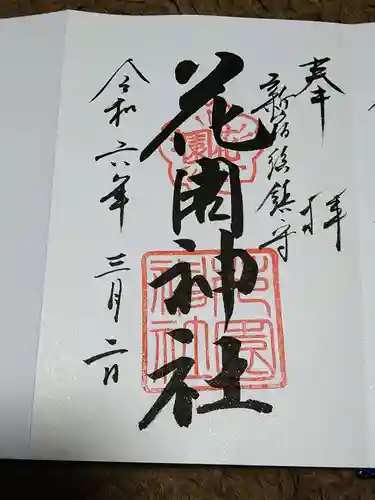 奉拝
新宿総鎮守
花園神社
令和六年三月二日
花園
花園神社